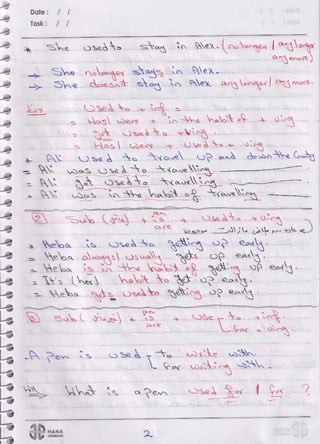 Date : / /
Task : / /
* She used to stay in Alex. (no longer / any longer
any more)
→ She no longer stays in Alex.
→ She doesn't stay in Alex any longer / any more.
used to + inf. =
= was / were + in the habit of + ving
= got used to + ving
= was / were + used to + ving
* Ali used to travel up and down the County
= Ali was used to travelling
= Ali got used to travelling
= Ali was in the habit of travelling
② Sub ( ) + am is are + used to + ving
* Heba is used to getting up early.
= Heba always / usually gets up early.
= Heba is in the habit of getting up early.
= It's (her) habit to get up early.
= Heba gets used to getting up early
③ Sub ( ) + am is are + use to + inf.
for + ving.
- A pen is used to write with.
for writing with.
What is a pen used for / for ?
HANA
2